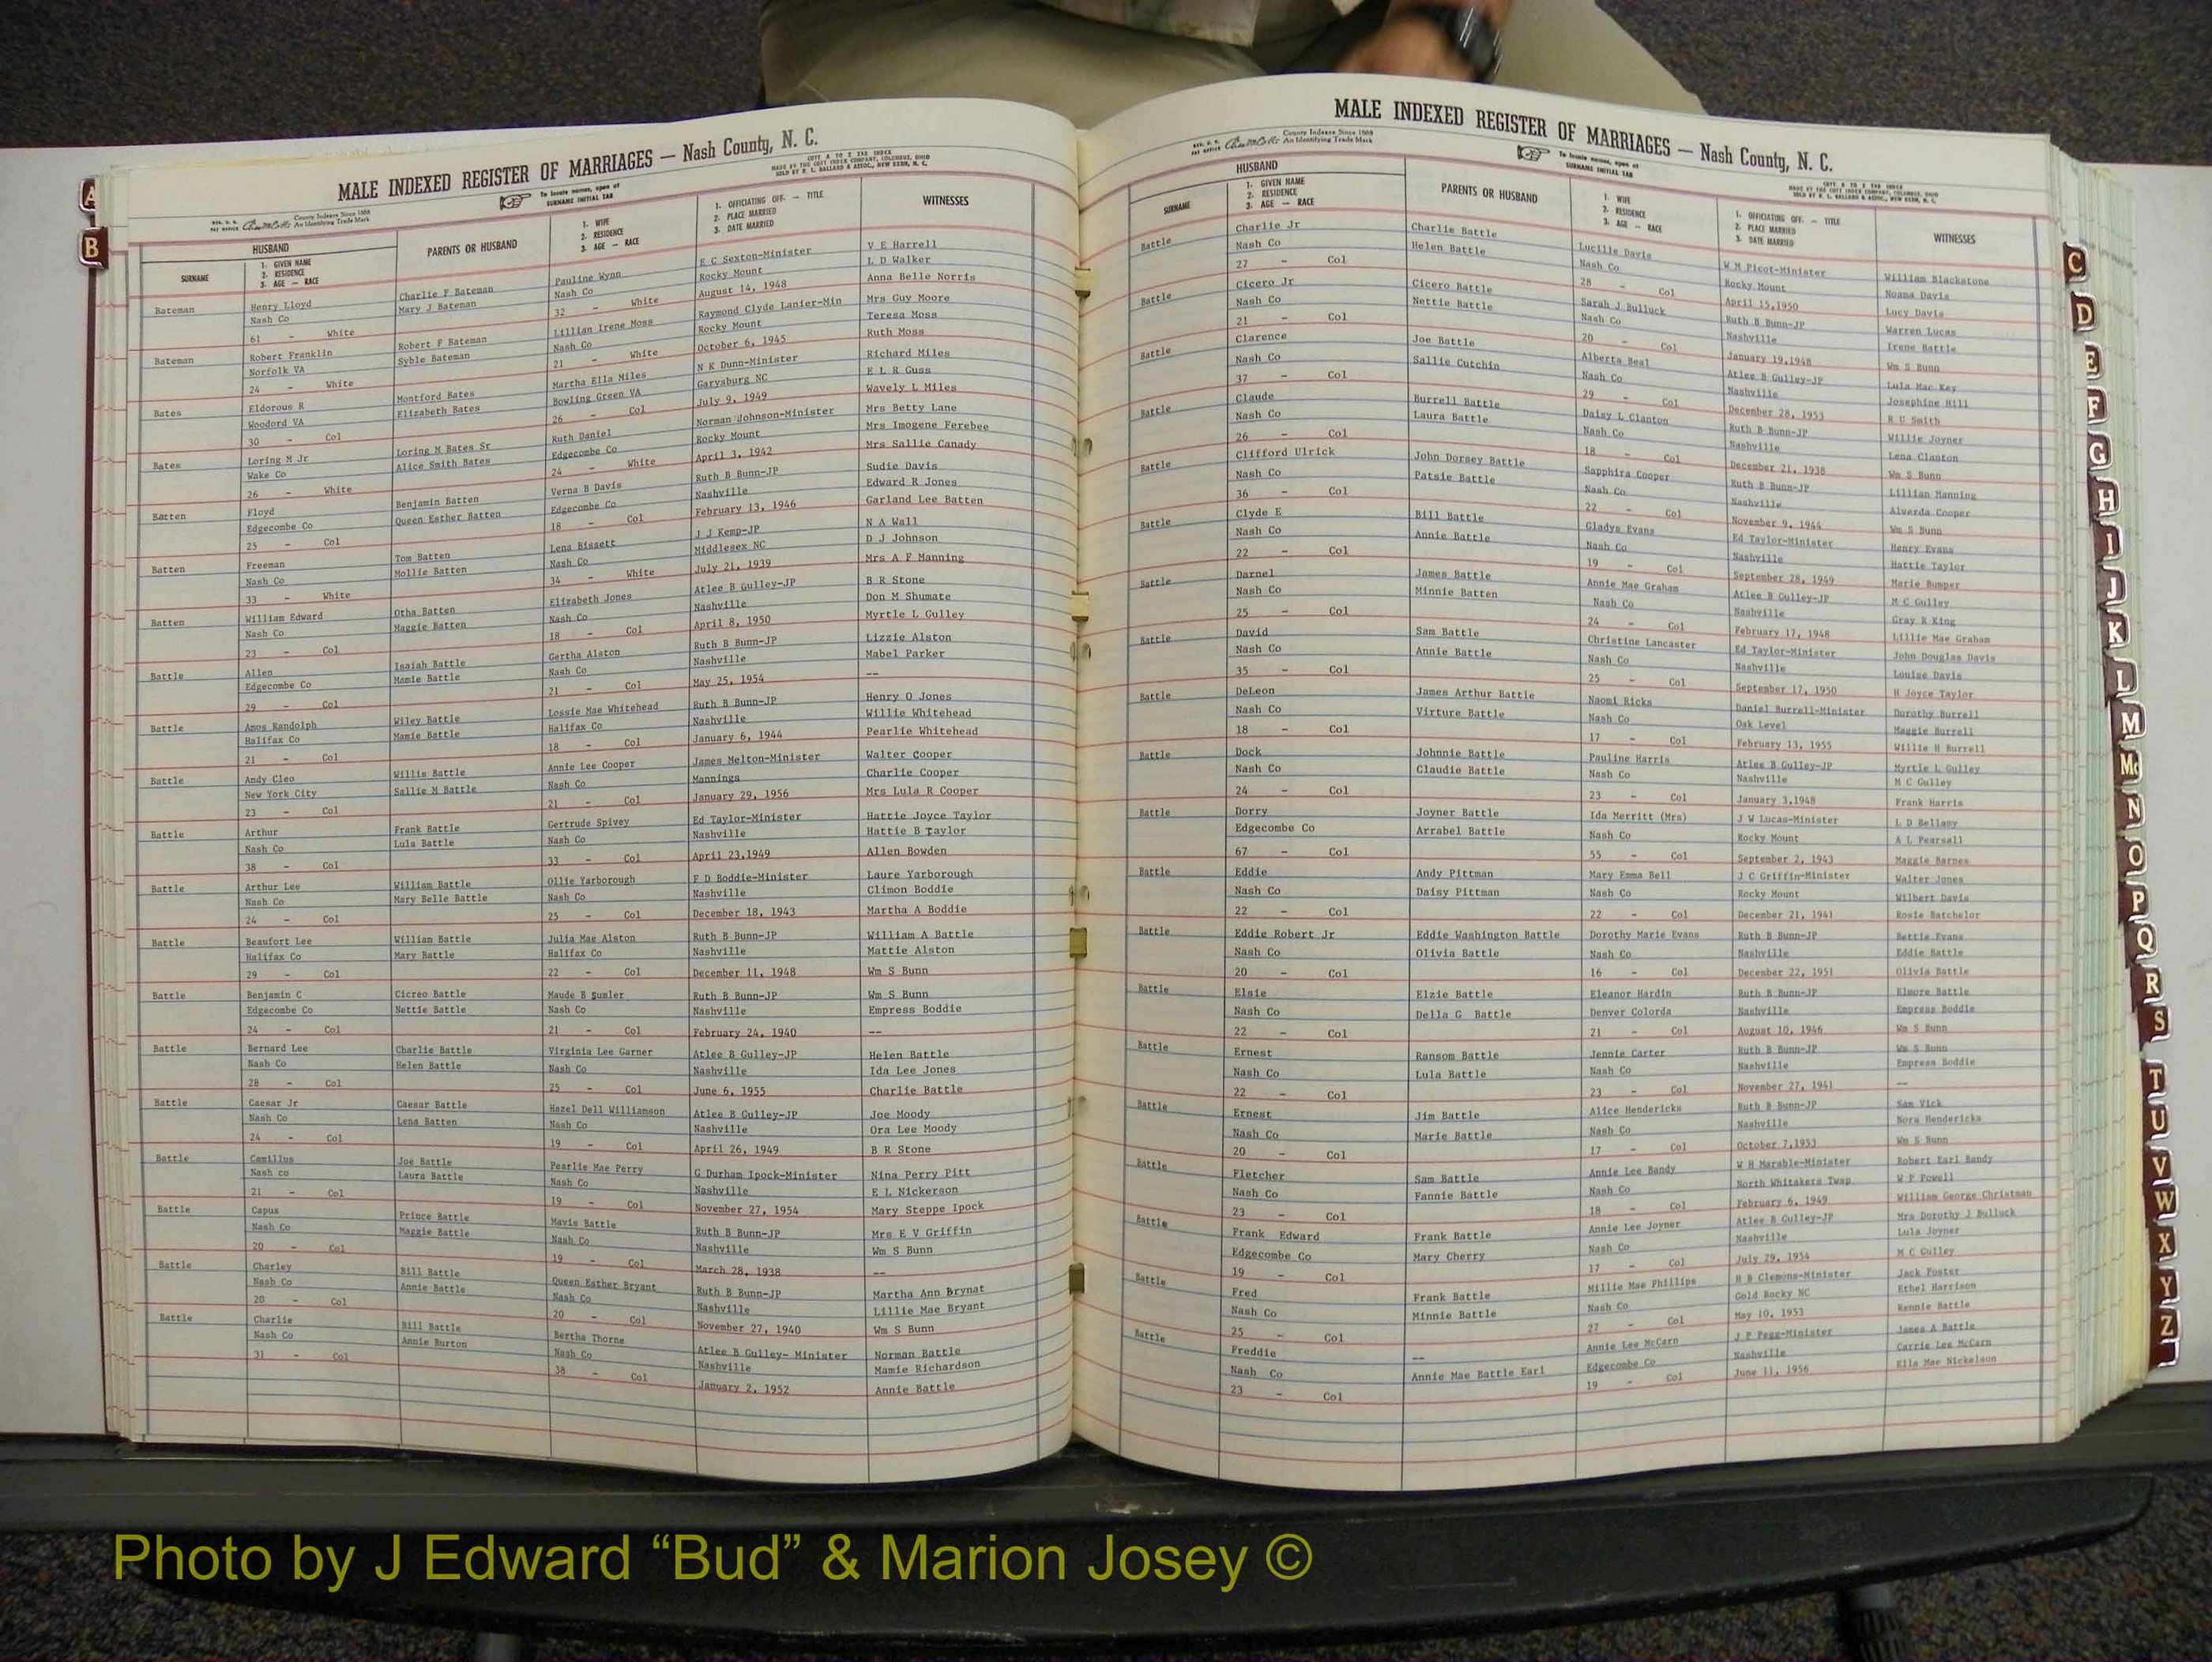 MALE INDEXED REGISTER OF MARRIAGES — Nash County, N. C.
REG. U. S. PAT OFFICE County Indexes Since 1888 An Identifying Trade Mark
To locate names, open at SURNAME INITIAL TAB
COTT A TO Z TAB INDEX
MADE BY THE COTT INDEX COMPANY, COLUMBUS, OHIO
SOLD BY R. L. BALLARD & ASSOC., NEW BERN, N. C.
HUSBAND
SURNAME 1. GIVEN NAME 2. RESIDENCE 3. AGE — RACE PARENTS OR HUSBAND 1. WIFE 2. RESIDENCE 3. AGE — RACE 1. OFFICIATING OFF. — TITLE 2. PLACE MARRIED 3. DATE MARRIED WITNESSES
Bateman Henry Lloyd Charlie F Bateman Pauline Wynn E C Sexton-Minister V E Harrell
Nash Co Mary J Bateman Nash Co Rocky Mount L D Walker
61 - White 32 - White August 14, 1948 Anna Belle Norris
Bateman Robert Franklin Robert F Bateman Lillian Irene Moss Raymond Clyde Lanier-Min Mrs Guy Moore
Norfolk VA Syble Bateman Nash Co Rocky Mount Teresa Moss
24 - White 21 - White October 6, 1945 Ruth Moss
Bates Eldorous R Montford Bates Martha Ella Miles N K Dunn-Minister Richard Miles
Woodord VA Elizabeth Bates Bowling Green VA Garysburg NC E L R Guss
30 - Col 26 - Col July 9, 1949 Wavely L Miles
Bates Loring M Jr Loring M Bates Sr Ruth Daniel Norman Johnson-Minister Mrs Betty Lane
Wake Co Alice Smith Bates Edgecombe Co Rocky Mount Mrs Imogene Ferebee
26 - White 24 - White April 3, 1942 Mrs Sallie Canady
Batten Floyd Benjamin Batten Verna B Davis Ruth B Bunn-JP Sudie Davis
Edgecombe Co Queen Esther Batten Edgecombe Co Nashville Edward R Jones
25 - Col 18 - Col February 13, 1946 Garland Lee Batten
Batten Freeman Tom Batten Lena Bissett J J Kemp-JP N A Wall
Nash Co Mollie Batten Nash Co Middlesex NC D J Johnson
33 - White 34 - White July 21, 1939 Mrs A F Manning
Batten William Edward Otha Batten Elizabeth Jones Atlee B Gulley-JP B R Stone
Nash Co Maggie Batten Nash Co Nashville Don M Shumate
23 - Col 18 - Col April 8, 1950 Myrtle L Gulley
Battle Allen Isaiah Battle Gertha Alston Ruth B Bunn-JP Lizzie Alston
Edgecombe Co Mamie Battle Nash Co Nashville Mabel Parker
29 - Col 21 - Col May 25, 1954 --
Battle Amos Randolph Wiley Battle Lossie Mae Whitehead Ruth B Bunn-JP Henry O Jones
Halifax Co Mamie Battle Halifax Co Nashville Willie Whitehead
21 - Col 18 - Col January 6, 1944 Pearlie Whitehead
Battle Andy Cleo Willis Battle Annie Lee Cooper James Melton-Minister Walter Cooper
New York City Sallie M Battle Nash Co Mannings Charlie Cooper
23 - Col 21 - Col January 29, 1956 Mrs Lula R Cooper
Battle Arthur Frank Battle Gertrude Spivey Ed Taylor-Minister Hattie Joyce Taylor
Nash Co Lula Battle Nash Co Nashville Hattie B Taylor
38 - Col 33 - Col April 23,1949 Allen Bowden
Battle Arthur Lee William Battle Ollie Yarborough P D Boddie-Minister Laure Yarborough
Nash Co Mary Belle Battle Nash Co Nashville Climon Boddie
24 - Col 25 - Col December 18, 1943 Martha A Boddie
Battle Beaufort Lee William Battle Julia Mae Alston Ruth B Bunn-JP William A Battle
Halifax Co Mary Battle Halifax Co Nashville Mattie Alston
29 - Col 22 - Col December 11, 1948 Wm S Bunn
Battle Benjamin C Cicreo Battle Maude B Sumler Ruth B Bunn-JP Wm S Bunn
Edgecombe Co Nettie Battle Nash Co Nashville Empress Boddie
24 - Col 21 - Col February 24, 1940 --
Battle Bernard Lee Charlie Battle Virginia Lee Garner Atlee B Gulley-JP Helen Battle
Nash Co Helen Battle Nash Co Nashville Ida Lee Jones
28 - Col 25 - Col June 6, 1955 Charlie Battle
Battle Caesar Jr Caesar Battle Hazel Dell Williamson Atlee B Gulley-JP Joe Moody
Nash Co Lena Batten Nash Co Nashville Ora Lee Moody
24 - Col 19 - Col April 26, 1949 B R Stone
Battle Camillus Joe Battle Pearlie Mae Perry G Durham Ipock-Minister Nina Perry Pitt
Nash co Laura Battle Nash Co Nashville E L Nickerson
21 - Col 19 - Col November 27, 1954 Mary Steppe Ipock
Battle Capus Prince Battle Mavis Battle Ruth B Bunn-JP Mrs E V Griffin
Nash Co Maggie Battle Nash Co Nashville Wm S Bunn
20 - Col 19 - Col March 28, 1938 --
Battle Charley Bill Battle Queen Esther Bryant Ruth B Bunn-JP Martha Ann Brynat
Nash Co Annie Battle Nash Co Nashville Lillie Mae Bryant
20 - Col 20 - Col November 27, 1940 Wm S Bunn
Battle Charlie Bill Battle Bertha Thorne Atlee B Gulley- Minister Norman Battle
Nash Co Annie Burton Nash Co Nashville Mamie Richardson
31 - Col 38 - Col January 2, 1952 Annie Battle
MALE INDEXED REGISTER OF MARRIAGES — Nash County, N. C.
REG. U. S. PAT OFFICE County Indexes Since 1888 An Identifying Trade Mark
To locate names, open at SURNAME INITIAL TAB
COTT A TO Z TAB INDEX
MADE BY THE COTT INDEX COMPANY, COLUMBUS, OHIO
SOLD BY R. L. BALLARD & ASSOC., NEW BERN, N. C.
HUSBAND
SURNAME 1. GIVEN NAME 2. RESIDENCE 3. AGE — RACE PARENTS OR HUSBAND 1. WIFE 2. RESIDENCE 3. AGE — RACE 1. OFFICIATING OFF. — TITLE 2. PLACE MARRIED 3. DATE MARRIED WITNESSES
Battle Charlie Jr Charlie Battle Lucille Davis W M Picot-Minister William Blackstone
Nash Co Helen Battle Nash Co Rocky Mount Noama Davis
27 - Col 28 - Col April 15,1950 Lucy Davis
Battle Cicero Jr Cicero Battle Sarah J Bulluck Ruth B Bunn-JP Warren Lucas
Nash Co Nettie Battle Nash Co Nashville Irene Battle
21 - Col 20 - Col January 19,1948 Wm S Bunn
Battle Clarence Joe Battle Alberta Beal Atlee B Gulley-JP Lula Mae Key
Nash Co Sallie Cutchin Nash Co Nashville Josephine Hill
37 - Col 29 - Col December 28, 1953 R U Smith
Battle Claude Burrell Battle Daisy L Clanton Ruth B Bunn-JP Willie Joyner
Nash Co Laura Battle Nash Co Nashville Lena Clanton
26 - Col 18 - Col December 21, 1938 Wm S Bunn
Battle Clifford Ulrick John Dorsey Battle Sapphira Cooper Ruth B Bunn-JP Lillian Manning
Nash Co Patsie Battle Nash Co Nashville Alverda Cooper
36 - Col 22 - Col November 9, 1944 Wm S Bunn
Battle Clyde E Bill Battle Gladys Evans Ed Taylor-Minister Henry Evans
Nash Co Annie Battle Nash Co Nashville Hattie Taylor
22 - Col 19 - Col September 28, 1949 Marie Bumper
Battle Darnel James Battle Annie Mae Graham Atlee B Gulley-JP M C Gulley
Nash Co Minnie Batten Nash Co Nashville Gray R King
25 - Col 24 - Col February 17, 1948 Lillie Mae Graham
Battle David Sam Battle Christine Lancaster Ed Taylor-Minister John Douglas Davis
Nash Co Annie Battle Nash Co Nashville Louise Davis
35 - Col 25 - Col September 17, 1950 H Joyce Taylor
Battle DeLeon James Arthur Battle Naomi Ricks Daniel Burrell-Minister Dorothy Burrell
Nash Co Virture Battle Nash Co Oak Level Maggie Burrell
18 - Col 17 - Col February 13, 1955 Willie H Burrell
Battle Dock Johnnie Battle Pauline Harris Atlee B Gulley-JP Myrtle L Gulley
Nash Co Claudie Battle Nash Co Nashville M C Gulley
24 - Col 23 - Col January 3,1948 Frank Harris
Battle Dorry Joyner Battle Ida Merritt (Mrs) J W Lucas-Minister L D Bellamy
Edgecombe Co Arrabel Battle Nash Co Rocky Mount A L Pearsall
67 - Col 55 - Col September 2, 1943 Maggie Barnes
Battle Eddie Andy Pittman Mary Emma Bell J C Griffin-Minister Walter Jones
Nash Co Daisy Pittman Nash Co Rocky Mount Wilbert Davis
22 - Col 22 - Col December 21, 1941 Rosie Batchelor
Battle Eddie Robert Jr Eddie Washington Battle Dorothy Marie Evans Ruth B Bunn-JP Bettie Evans
Nash Co Olivia Battle Nash Co Nashville Eddie Battle
20 - Col 16 - Col December 22, 1951 Olivia Battle
Battle Elsie Elzie Battle Eleanor Hardin Ruth B Bunn-JP Elmore Battle
Nash Co Della G Battle Denver Colorda Nashville Empress Boddie
22 - Col 21 - Col August 10, 1946 Wm S Bunn
Battle Ernest Ransom Battle Jennie Carter Ruth B Bunn-JP Wm S Bunn
Nash Co Lula Battle Nash Co Nashville Empress Boddie
22 - Col 23 - Col November 27, 1941 --
Battle Ernest Jim Battle Alice Hendericks Ruth B Bunn-JP Sam Vick
Nash Co Marie Battle Nash Co Nashville Nora Hendericks
20 - Col 17 - Col October 7,1953 Wm S Bunn
Battle Fletcher Sam Battle Annie Lee Bandy W H Marable-Minister Robert Earl Bandy
Nash Co Fannie Battle Nash Co North Whitakers Twsp W P Powell
23 - Col 18 - Col February 6, 1949 William George Christman
Battle Frank Edward Frank Battle Annie Lee Joyner Atlee B Gulley-JP Mrs Dorothy J Bulluck
Edgecombe Co Mary Cherry Nash Co Nashville Lula Joyner
19 - Col 17 - Col July 29, 1954 M C Gulley
Battle Fred Frank Battle Millie Mae Phillips H B Clemons-Minister Jack Foster
Nash Co Minnie Battle Nash Co Gold Rocky NC Ethel Harrison
25 - Col 27 - Col May 10, 1953 Rennie Battle
Battle Freddie -- Annie Lee McCarn J P Pegg-Minister James A Battle
Nash Co Annie Mae Battle Earl Edgecombe Co Nashville Carrie Lee McCarn
23 - Col 19 - Col June 11, 1956 Ella Mae Nickelson
A
B
C
D
E
F
G
H
I
J
K
L
M
Mc
N
O
P
Q
R
S
T
U
V
W
X
Y
Z
Photo by J Edward “Bud” & Marion Josey ©